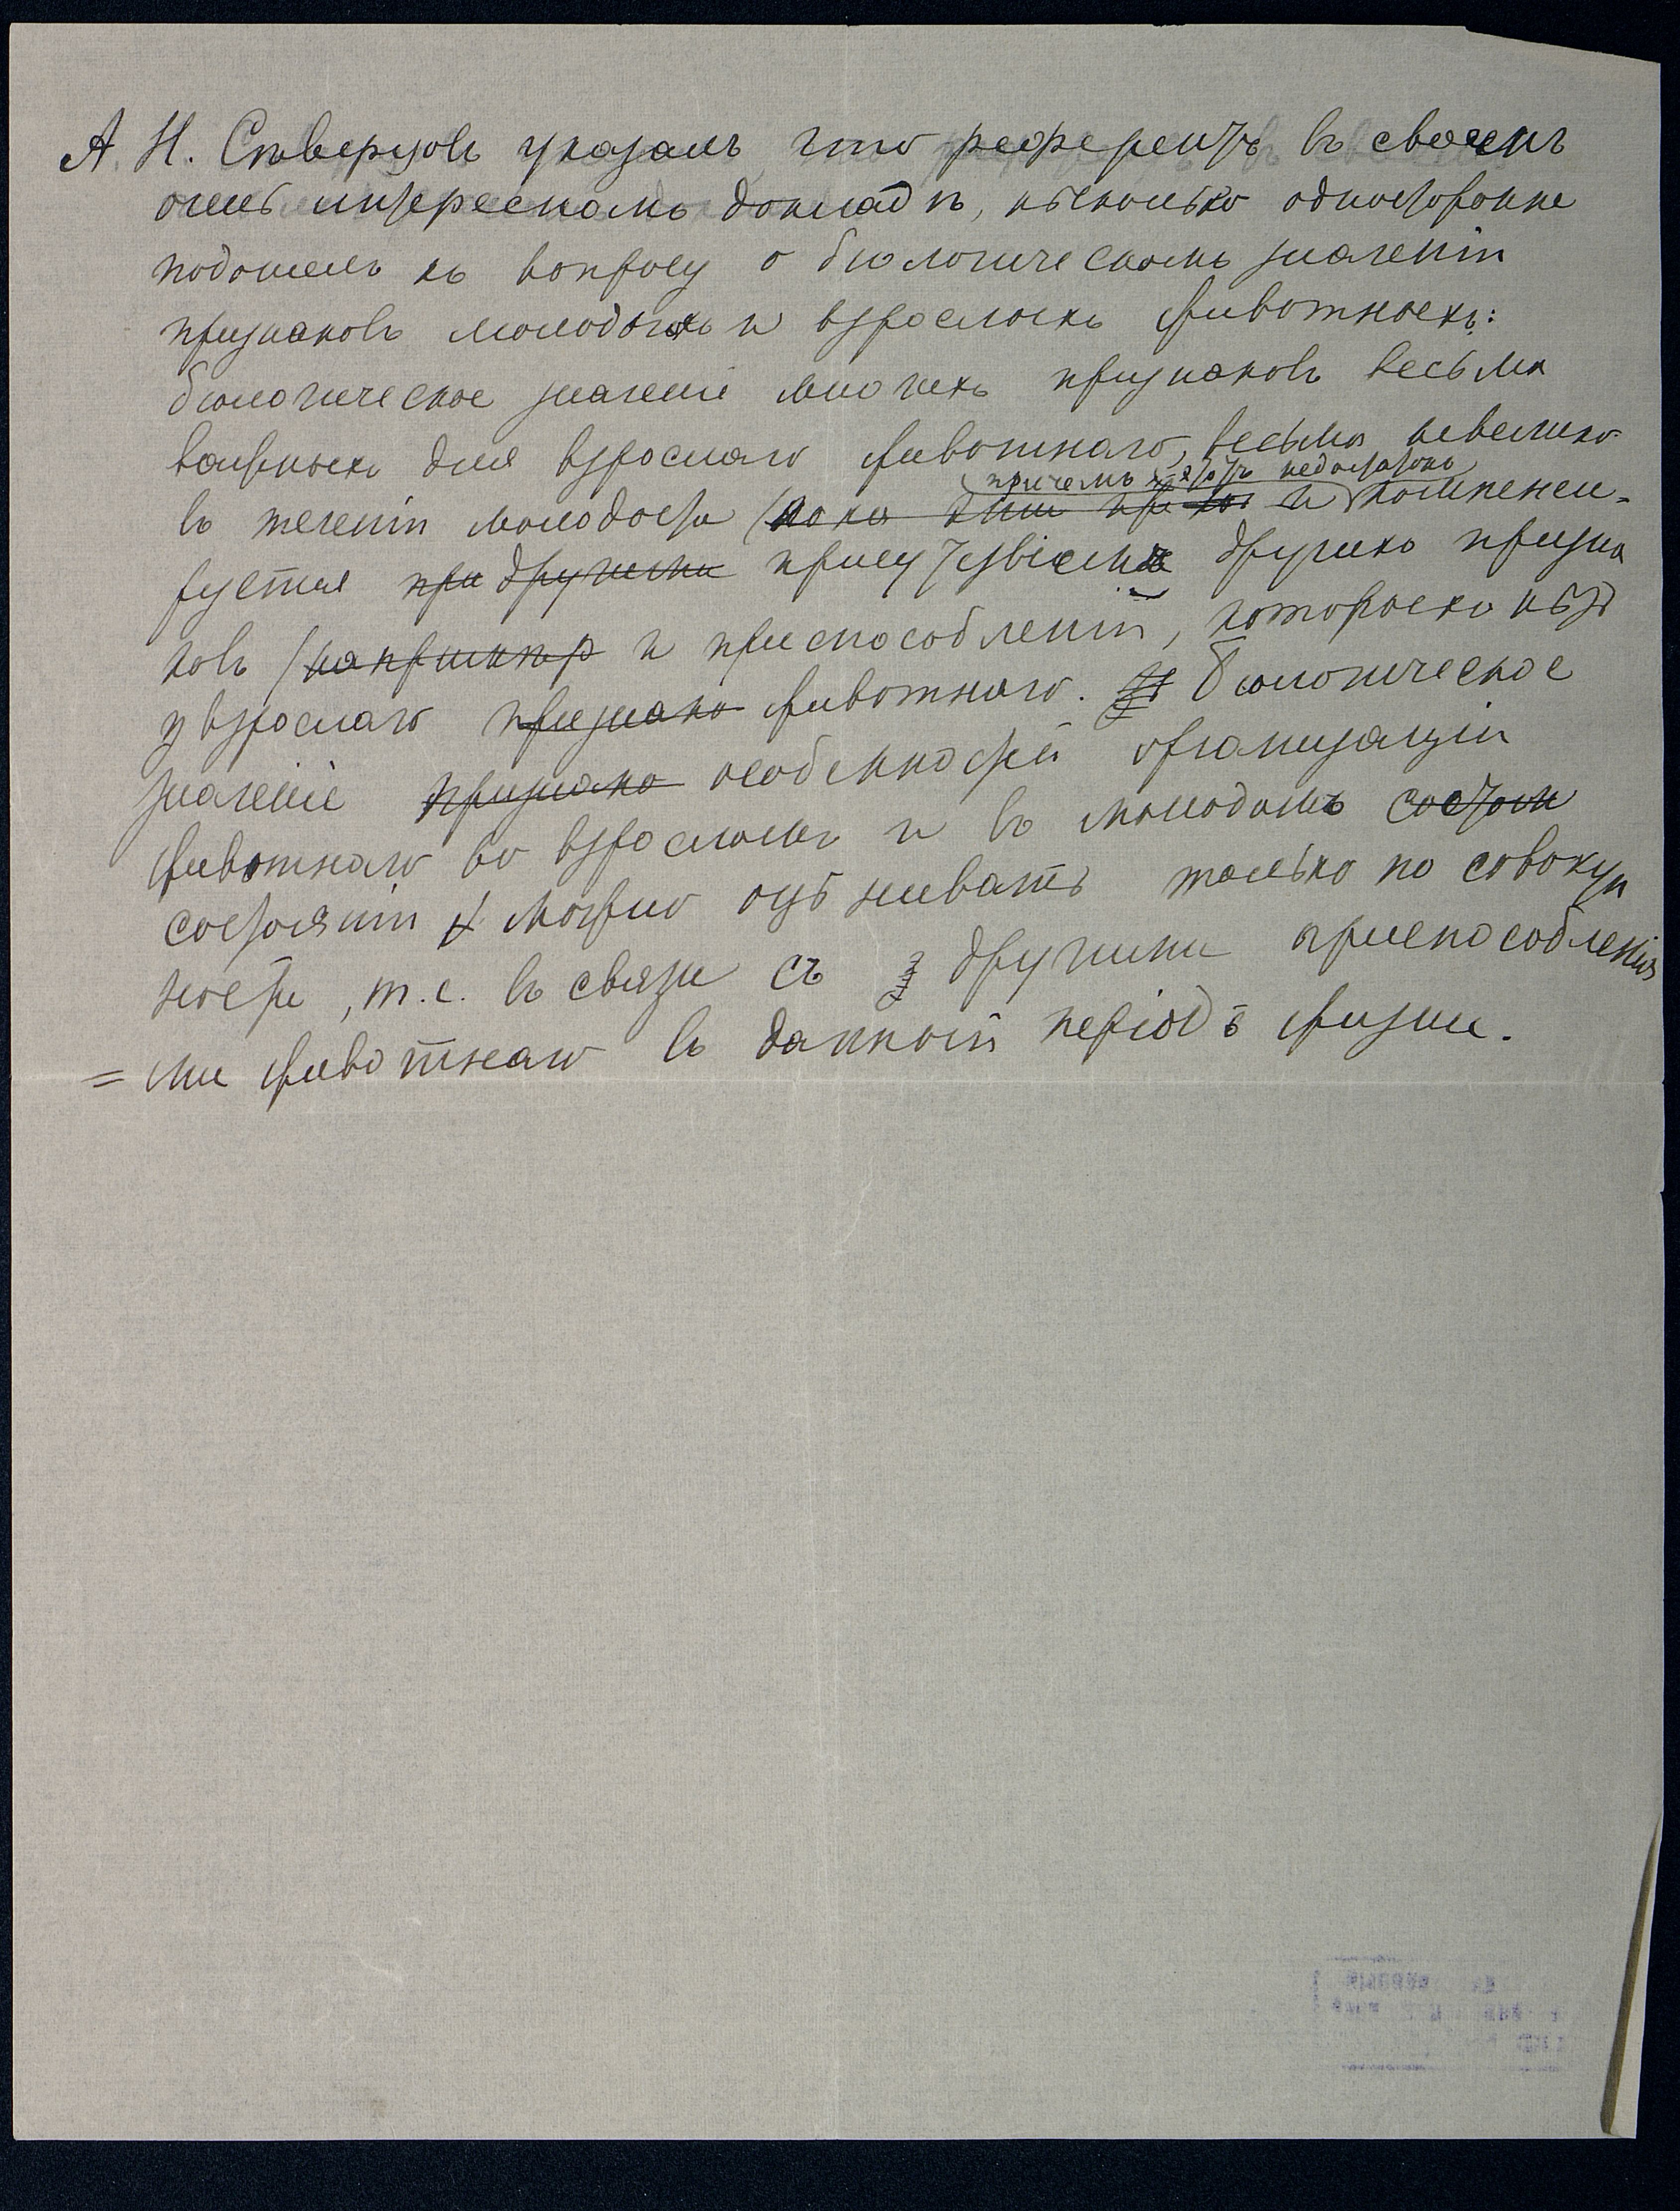 А. Н. Сѣверцовъ указалъ что референтъ въ своемъ
очень интересномъ докладѣ, нѣсколько односторонне
подошелъ къ вопросу о біологическомъ значеніи
признаковъ молодыхъ и взрослыхъ животныхъ:
біологическое значеніе многихъ признаковъ весьма
важныхъ для взрослаго животнаго, весьма невелико
причемъ этотъ недостатокъ
въ теченіи молодости (пока они при и компенси-
руется при другими присутствіемъ другихъ призна
ковъ (напримѣр и приспособленій, которыхъ нѣтъ
у взрослаго признако животнаго. Біологическое
значеніе признако особенностей организаціи
животнаго во взросломъ и въ молодомъ состои
состояніи можно оцѣнивать только по совокуп
ности, т.е. въ связи съ другими приспособленія
= ми животнаго въ данный періодъ жизни.